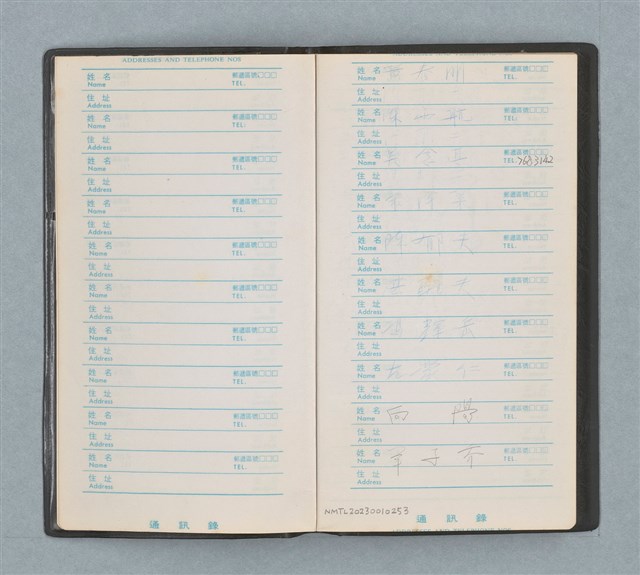 ADDRESSES AND TELEPHONE NOS
姓 名 郵遞區號□□□
Name TEL.
住 址
Address
姓 名 郵遞區號□□□
Name TEL.
住 址
Address
姓 名 郵遞區號□□□
Name TEL.
住 址
Address
姓 名 郵遞區號□□□
Name TEL.
住 址
Address
姓 名 郵遞區號□□□
Name TEL.
住 址
Address
姓 名 郵遞區號□□□
Name TEL.
住 址
Address
姓 名 郵遞區號□□□
Name TEL.
住 址
Address
姓 名 郵遞區號□□□
Name TEL.
住 址
Address
姓 名 郵遞區號□□□
Name TEL.
住 址
Address
姓 名 郵遞區號□□□
Name TEL.
住 址
Address
通 訊 錄
姓 名 郵遞區號□□□
Name TEL.
住 址
Address
姓 名 郵遞區號□□□
Name TEL.
住 址
Address
姓 名 郵遞區號□□□
Name TEL. 7683142
住 址
Address
姓 名 郵遞區號□□□
Name TEL.
住 址
Address
姓 名 陳郁夫 郵遞區號□□□
Name TEL.
住 址
Address
姓 名 郵遞區號□□□
Name TEL.
住 址
Address
姓 名 郵遞區號□□□
Name TEL.
住 址
Address
姓 名 郵遞區號□□□
Name TEL.
住 址
Address
姓 名 向 陽 郵遞區號□□□
Name TEL.
住 址
Address
姓 名 羊子喬 郵遞區號□□□
Name TEL.
住 址
Address
NMTL20230010253
通 訊 錄